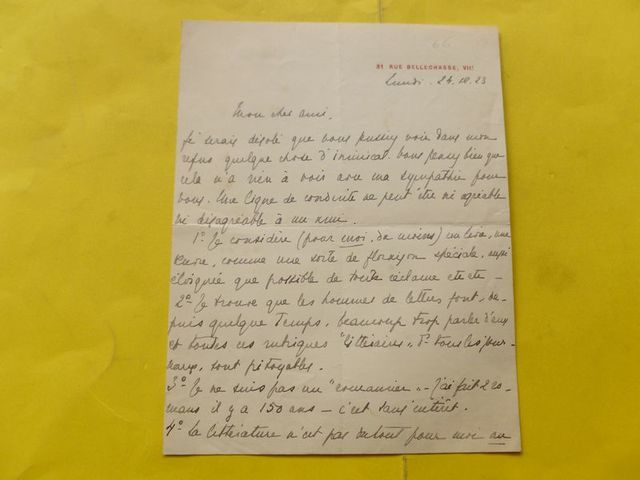 31 RUE BELLECHASSE, VIIe
Lundi. 24.10.23
Mon cher ami.
Je serais désolé que vous puissiez voir dans mon
refus quelque chose d'inimical. Vous pensez bien que
cela n'a rien à voir avec ma sympathie pour
vous. Une ligne de conduite ne peut être ni agréable
ni désagréable à un ami.
1º Je considère (pour moi, du moins) un livre, une
œuvre, comme une sorte de floraison spéciale, aussi
éloignée que possible de toute réclame etc etc -
2º Je trouve que les hommes de lettres font, de-
puis quelque temps, beaucoup trop parler d'eux
et toutes ces rubriques "littéraires", de tous les jour-
naux, sont pitoyables.
3º Je ne suis pas un "romancier" - J'ai fait 2 ro-
mans il y a 150 ans - c'est sans intérêt.
4º La littérature n'est pas du tout pour moi un